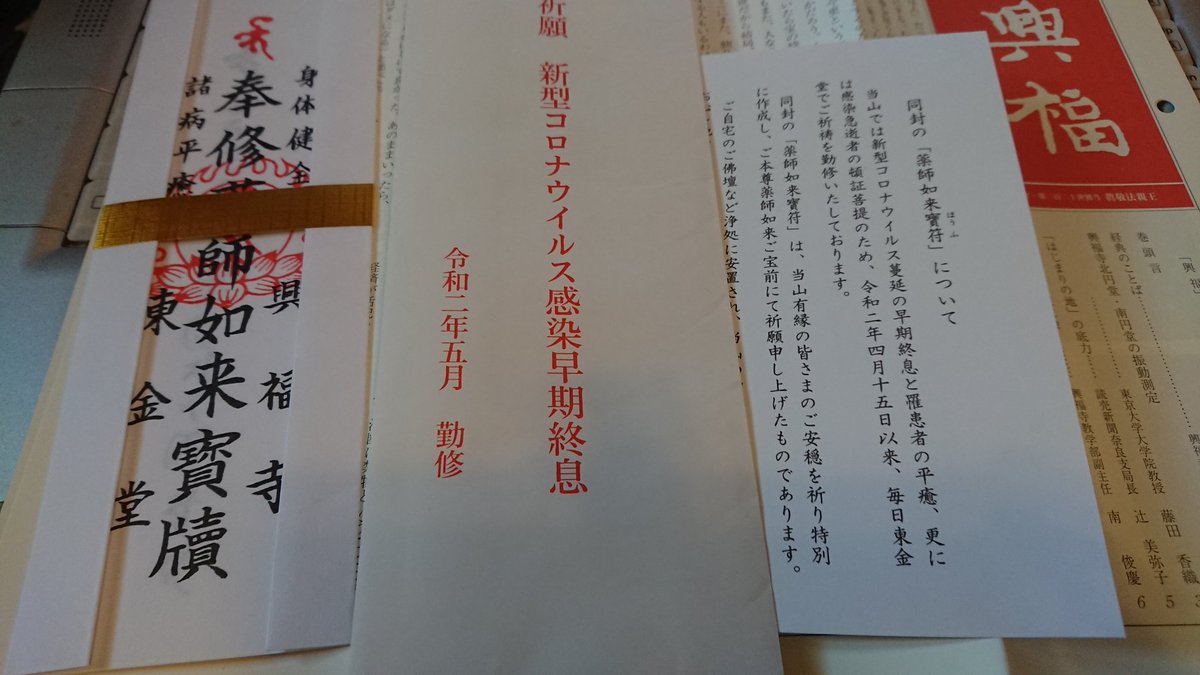 身体健全
奉修薬師如来寳牘
諸病平癒
興福寺
東金堂
祈願　新型コロナウイルス感染早期終息
令和二年五月　勤修
同封の「薬師如来寳符」について
ほうふ
当山では新型コロナウイルス蔓延の早期終息と罹患者の平癒、更に
は感染急逝者の頓証菩提のため、令和二年四月十五日以来、毎日東金
堂でご祈祷を勤修いたしております。
同封の「薬師如来寳符」は、当山有縁の皆さまのご安穏を祈り特別
に作成し、ご本尊薬師如来ご宝前にて祈願申し上げたものであります。
ご自宅のご佛壇など浄処に安置され、
興福
眞敬法親王
「興福」
巻頭言
経典のことば
興福寺北円堂・南円堂の振動測定
東京大学大学院教授　藤田　香織　3
「はじまりの地」の底力
読売新聞奈良支局長　辻　美弥子　5
興福寺教学部副主任　南　俊慶　6
あのままいったら、